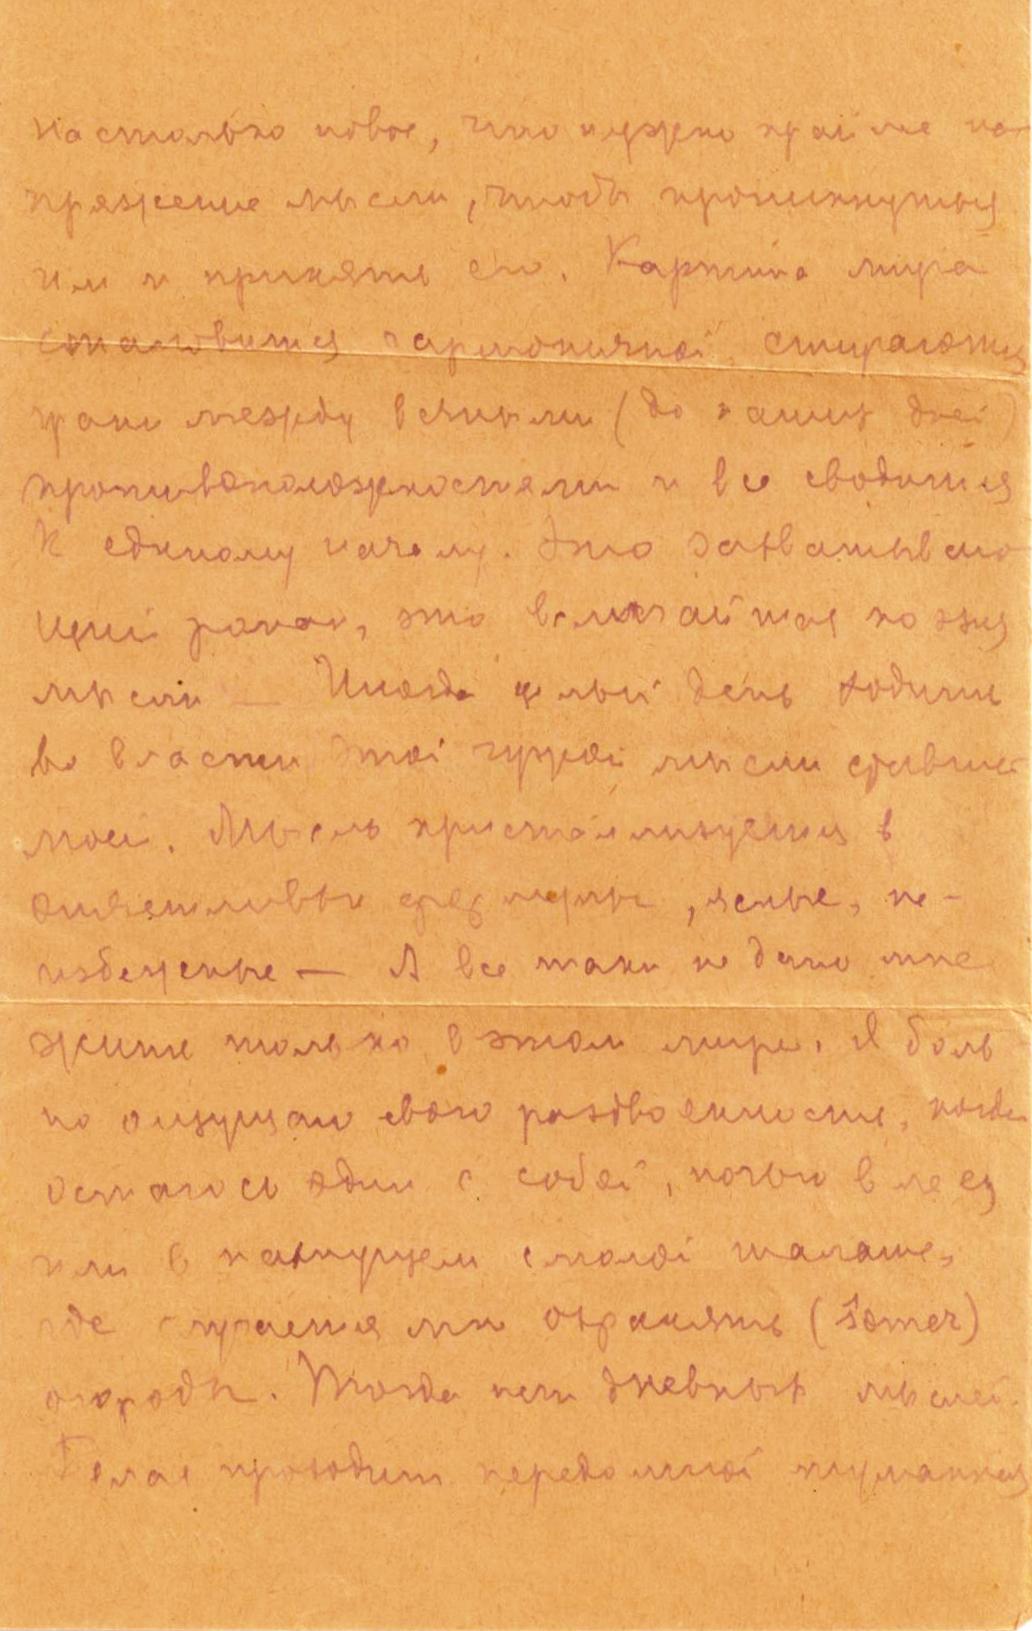 настолько новое, что нужно крайнее на-
пряжение мысли, чтобы проникнуться
им и принять его. Картина мира
становится гармоничной, стираются
грани между вечными (до наших дней)
противоположностями и все сводится
к единому началу. Это захватываю
щий роман, это величайшая поэзия
мысли — Иногда целый день ходишь
во власти этой чужой мысли ставшей
моей. Мысль кристаллизуется в
отчетливые формулы, ясные, не-
избежные — А все таки не дано мне
жить только в этом мире. Я боль
но ощущаю свою раздвоенность, когда
остаюсь один с собой, ночью в лесу
или в пахнущем смолой шалаше,
где случается мне охранять (šomer)
огороды. Тогда нет дневных мыслей.
Белая проходит передо мной туманная